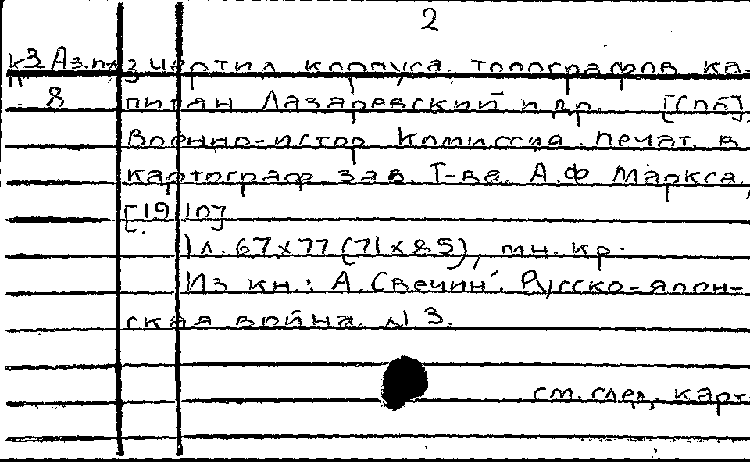 2
К3 Аз.пл чертил корпуса топографов ка-
8 питан Лазаревский и др. [Спб],
Военно-истор Комиссия. печат. в
картограф зав. Т-ва. А.Ф Маркса,
[1910]
1 л. 67х77 (71х85), мн. кр.
Из кн.: А. Свечин. Русско-япон-
ская война. №3.
см. след. карт